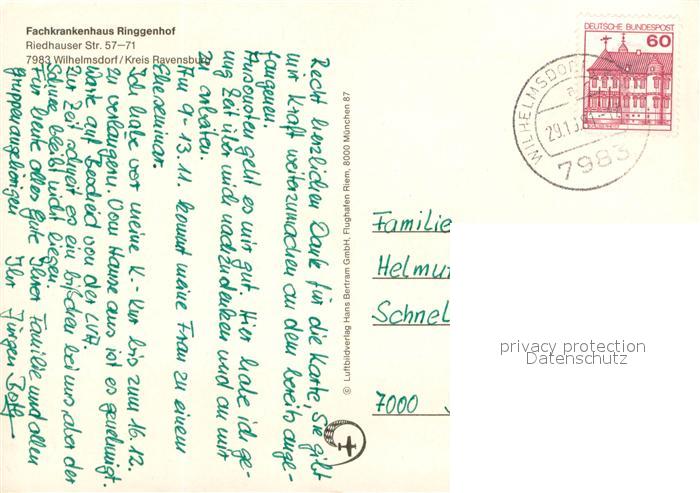 Fachkrankenhaus Ringgenhof
Riedhauser Str. 57–71
7983 Wilhelmsdorf/Kreis Ravensburg
Recht herzlichen Dank für die Karte. Sie gibt
mir Kraft weiterzumachen an dem bereits ange-
fangenen.
Ansonsten geht es mir gut. Hier habe ich ge-
nug Zeit über mich nachzudenken und an mir
zu arbeiten.
Am 9.-13.11. kommt meine Frau zu einem
Eheseminar.
Ich habe vor meine K.-Kur bis zum 16.12.
zu verlängern. Vom Hause aus ist es genehmigt.
Warte auf Bescheid von der LVA.
Zur Zeit schneit es ein bißchen bei uns, aber der
Schnee bleibt nicht liegen.
Für heute alles Gute Ihrer Familie und allen
Gruppenangehörigen
Ihr Jürgen
© Luftbildverlag Hans Bertram GmbH, Flughafen Riem, 8000 München 87
DEUTSCHE BUNDESPOST
60
WILHELMSDORF
29.1
7983
Familie
Helmu
Schnel
7000
privacy protection
Datenschutz